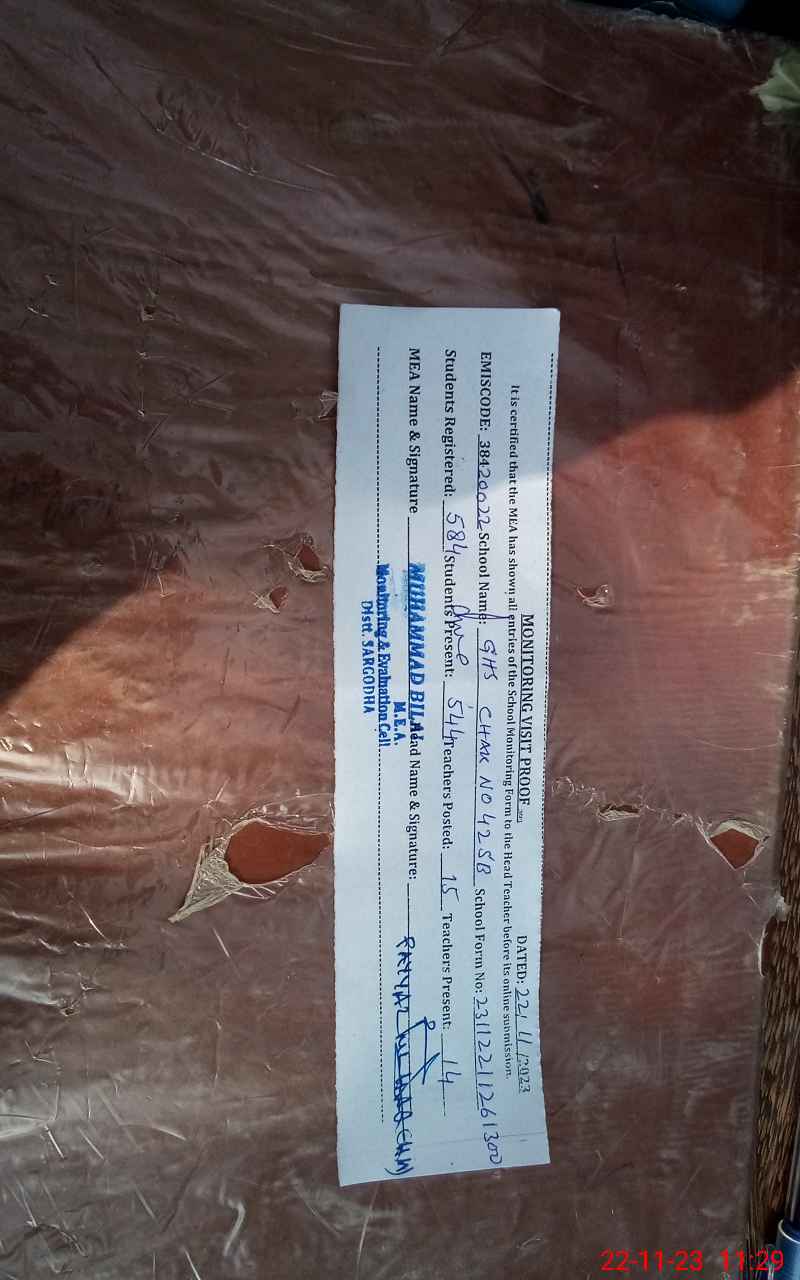 MONITORING VISIT PROOF
DATED: 22/11/2023
It is certified that the MEA has shown all entries of the School Monitoring Form to the Head Teacher before its online submission.
EMISCODE: 38420022 School Name: GHS CHAK NO 42SB School Form No: 23112211261300
Students Registered: 584 Students Present: 544 Teachers Posted: 15 Teachers Present: 14
MEA Name & Signature MUHAMMAD BILAL Head Name & Signature:
M.E.A.
Monitoring & Evaluation Cell
Distt. SARGODHA
22-11-23 11:29